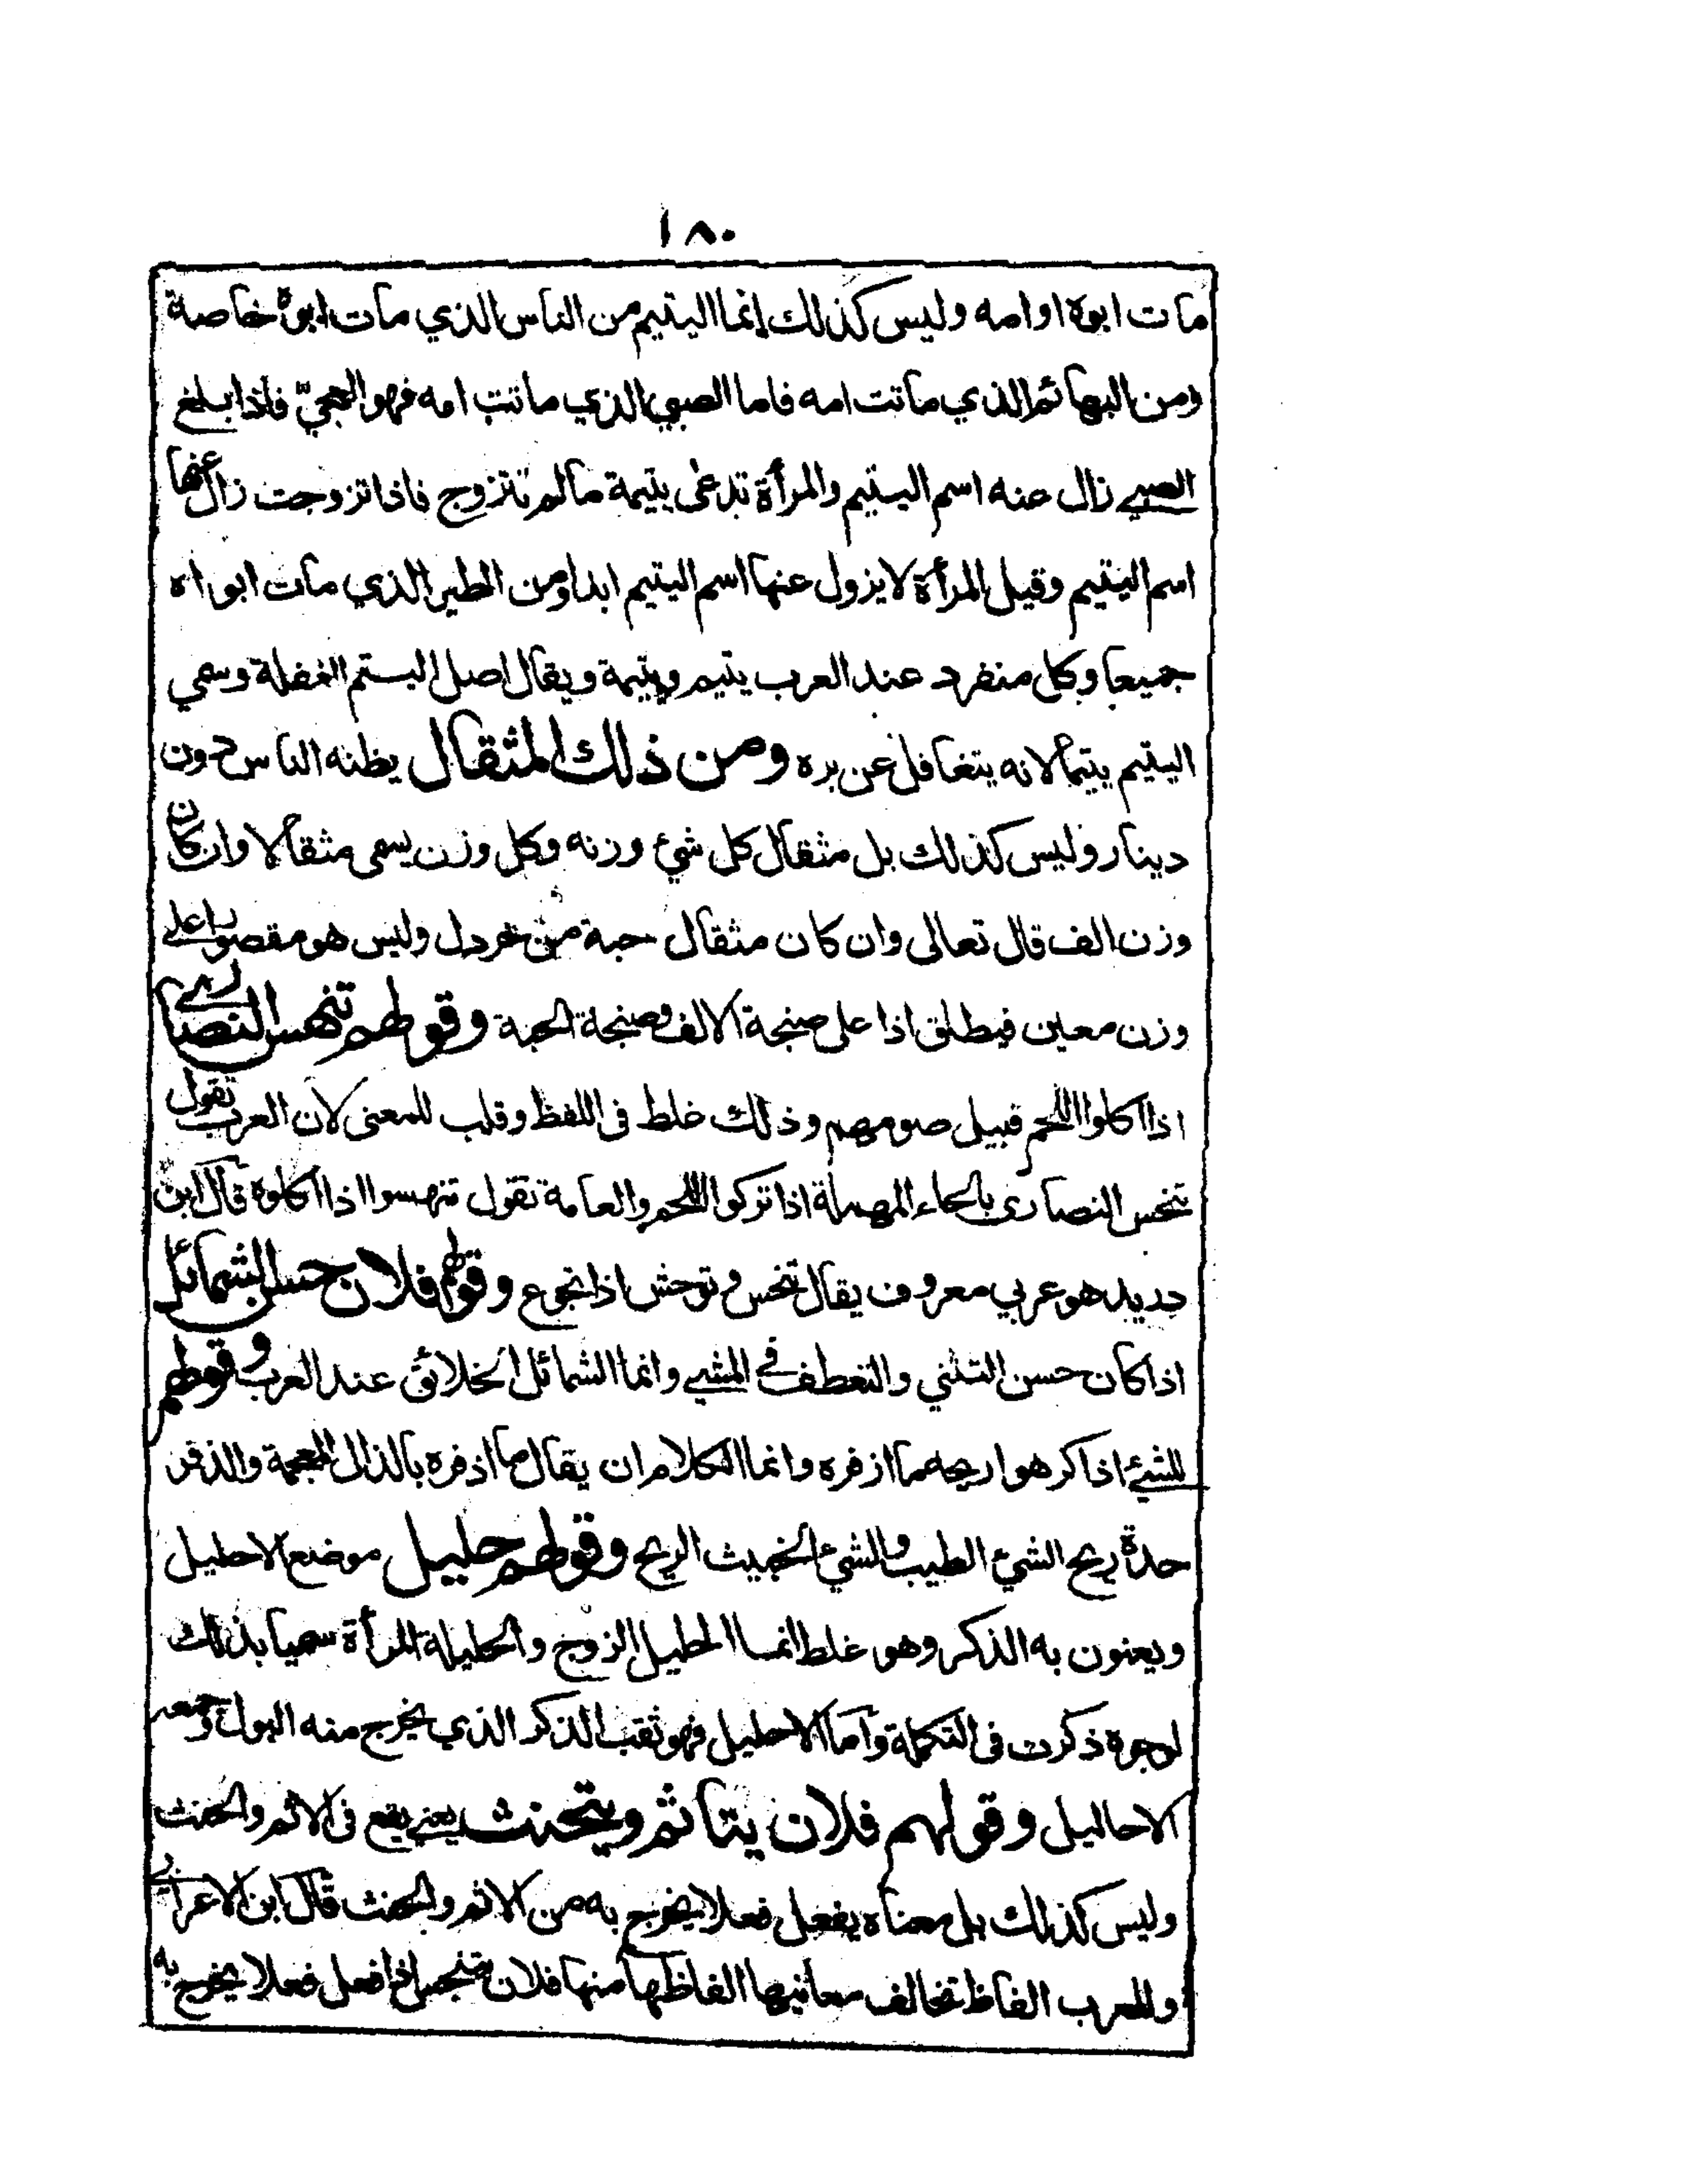 ١٨٠
مات ابوه او امه وليس كذلك إنما اليتيم من الناس الذي مات ابوه خاصة
ومن البهائم الذي ماتت امه فاما الصبي الذي ماتت امه فهو العجيّ فاذا بلغ
الصبي زال عنه اسم اليتيم والمرأة تدعى يتيمة ما لم تتزوج فاذا تزوجت زال عنها
اسم اليتيم وقيل المرأة لا يزول عنها اسم اليتيم ابدا ومن الطير الذي مات ابواه
جميعا وكل منفرد عند العرب يتيم ويتيمة ويقال اصل اليتم الغفلة وسمي
اليتيم يتيما لانه يتغافل عن بره ومن ذلك المثقال يظنه الناس دون
دينار وليس كذلك بل مثقال كل شئ وزنه وكل وزن يسمى مثقالا وان كان
وزن الف قال تعالى وان كان مثقال حبة من خردل وليس هو مقصورا على
وزن معين فيطلق اذا على صنجة الالف وصنجة الحبة وقولهم تنهس النصارى
اذا اكلوا اللحم قبيل صومهم وذلك خلط فى اللفظ وقلب للمعنى لان العرب تقول
تنحس النصارى بالحاء المهملة اذا تركوا اللحم والعامة تقول تنهسوا اذا اكلوه قال ابن
دريد هو عربي معروف يقال تنحس وتوحش اذا تجوع وقولهم فلان حسن الشمائل
اذا كان حسن التثني والتعطف في المشي وانما الشمائل الخلائق عند العرب وقولهم
للشئ اذا كرهوا ريحه ما ازفره وانما الكلام ان يقال ما اذفره بالذال المعجمة والذفر
حدة ريح الشئ الطيب والشئ الخبيث الريح وقولهم حليل موضع الاحليل
ويعنون به الذكر وهو غلط انما الحليل الزوج والحليلة المرأة سميا بذلك
لوجوه ذكرت فى التكملة واما الاحليل فهو ثقب الذكر الذي يخرج منه البول وجمعه
الاحاليل وقولهم فلان يتاثم ويتحنث يعني يقع فى الاثم والحنث
وليس كذلك بل معناه يفعل فعلا يخرج به من الاثم والحنث قال ابن الاعرابي
وللعرب الفاظ تخالف معانيها الفاظها منها فلان يتنجس اذا فعل فعلا يخرج به